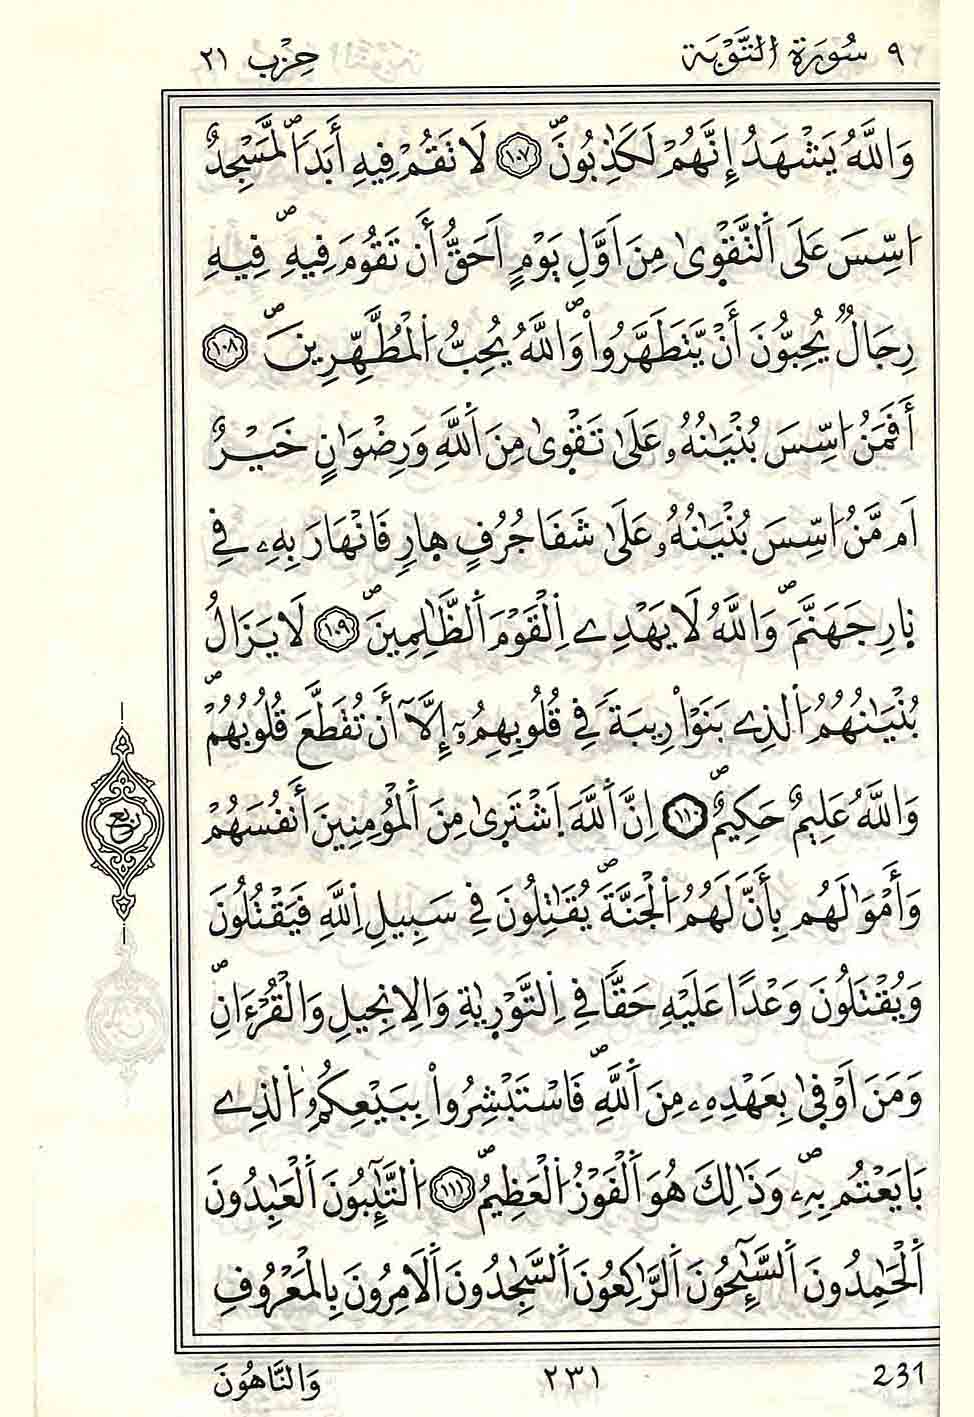 ٩ سُورَةُ التَّوْبَة حِزْب ٢١
وَاللَّهُ يَشْهَدُ إِنَّهُمْ لَكَٰذِبُونَۖ ١٠٧ لَا تَقُمْ فِيهِ أَبَداٗۖ لَّمَسْجِدٌ
اسِّسَ عَلَى اَلتَّقْوٜىٰ مِنَ اَوَّلِ يَوْمٍ اَحَقُّ أَن تَقُومَ فِيهِۖ فِيهِ
رِجَالٞ يُحِبُّونَ أَنْ يَّتَطَهَّرُواْۖ وَاللَّهُ يُحِبُّ اُلْمُطَّهِّرِينَۖ ١٠٨
أَفَمَنُ اسِّسَ بُنْيَٰنُهُۥ عَلَىٰ تَقْوٜىٰ مِنَ اَللَّهِ وَرِضْوَٰنٍ خَيْرٌ
اَم مَّنُ اسِّسَ بُنْيَٰنُهُۥ عَلَىٰ شَفَا جُرُفٍ هٜارٖ فَانْهَارَ بِهِۦ فِے
نٜارِ جَهَنَّمَۖ وَاللَّهُ لَا يَهْدِے اِلْقَوْمَ اَلظَّٰلِمِينَۖ ١٠٩ لَا يَزَالُ
بُنْيَٰنُهُمُ اُلذِے بَنَوْاْ رِيبَةٗ فِے قُلُوبِهِمُۥٓ إِلَّآ أَن تُقَطَّعَ قُلُوبُهُمْۖ
وَاللَّهُ عَلِيمٌ حَكِيمٌۖ ١١٠ اِنَّ اَللَّهَ اَشْتَرٜىٰ مِنَ اَلْمُؤْمِنِينَ أَنفُسَهُمْ
وَأَمْوَٰلَهُم بِأَنَّ لَهُمُ اُلْجَنَّةَۖ يُقَٰتِلُونَ فِے سَبِيلِ اِللَّهِ فَيَقْتُلُونَ
وَيُقْتَلُونَ وَعْدًا عَلَيْهِ حَقّٗا فِے اِلتَّوْرٜىٰةِ وَالِانجِيلِ وَالْقُرْءَانِۖ
وَمَنَ اَوْفٜىٰ بِعَهْدِهِۦ مِنَ اَللَّهِۖ فَاسْتَبْشِرُواْ بِبَيْعِكُمُ اُلذِے
بَايَعْتُم بِهِۦۖ وَذَٰلِكَ هُوَ اَلْفَوْزُ اُلْعَظِيمُۖ ١١١ اُلتَّٰٓئِبُونَ اَلْعَٰبِدُونَ
اَلْحَٰمِدُونَ اَلسَّٰٓئِحُونَ اَلرَّٰكِعُونَ اَلسَّٰجِدُونَ اَلَامِرُونَ بِالْمَعْرُوفِ
ربع
وَالنَّاهُونَ ٢٣١ 231